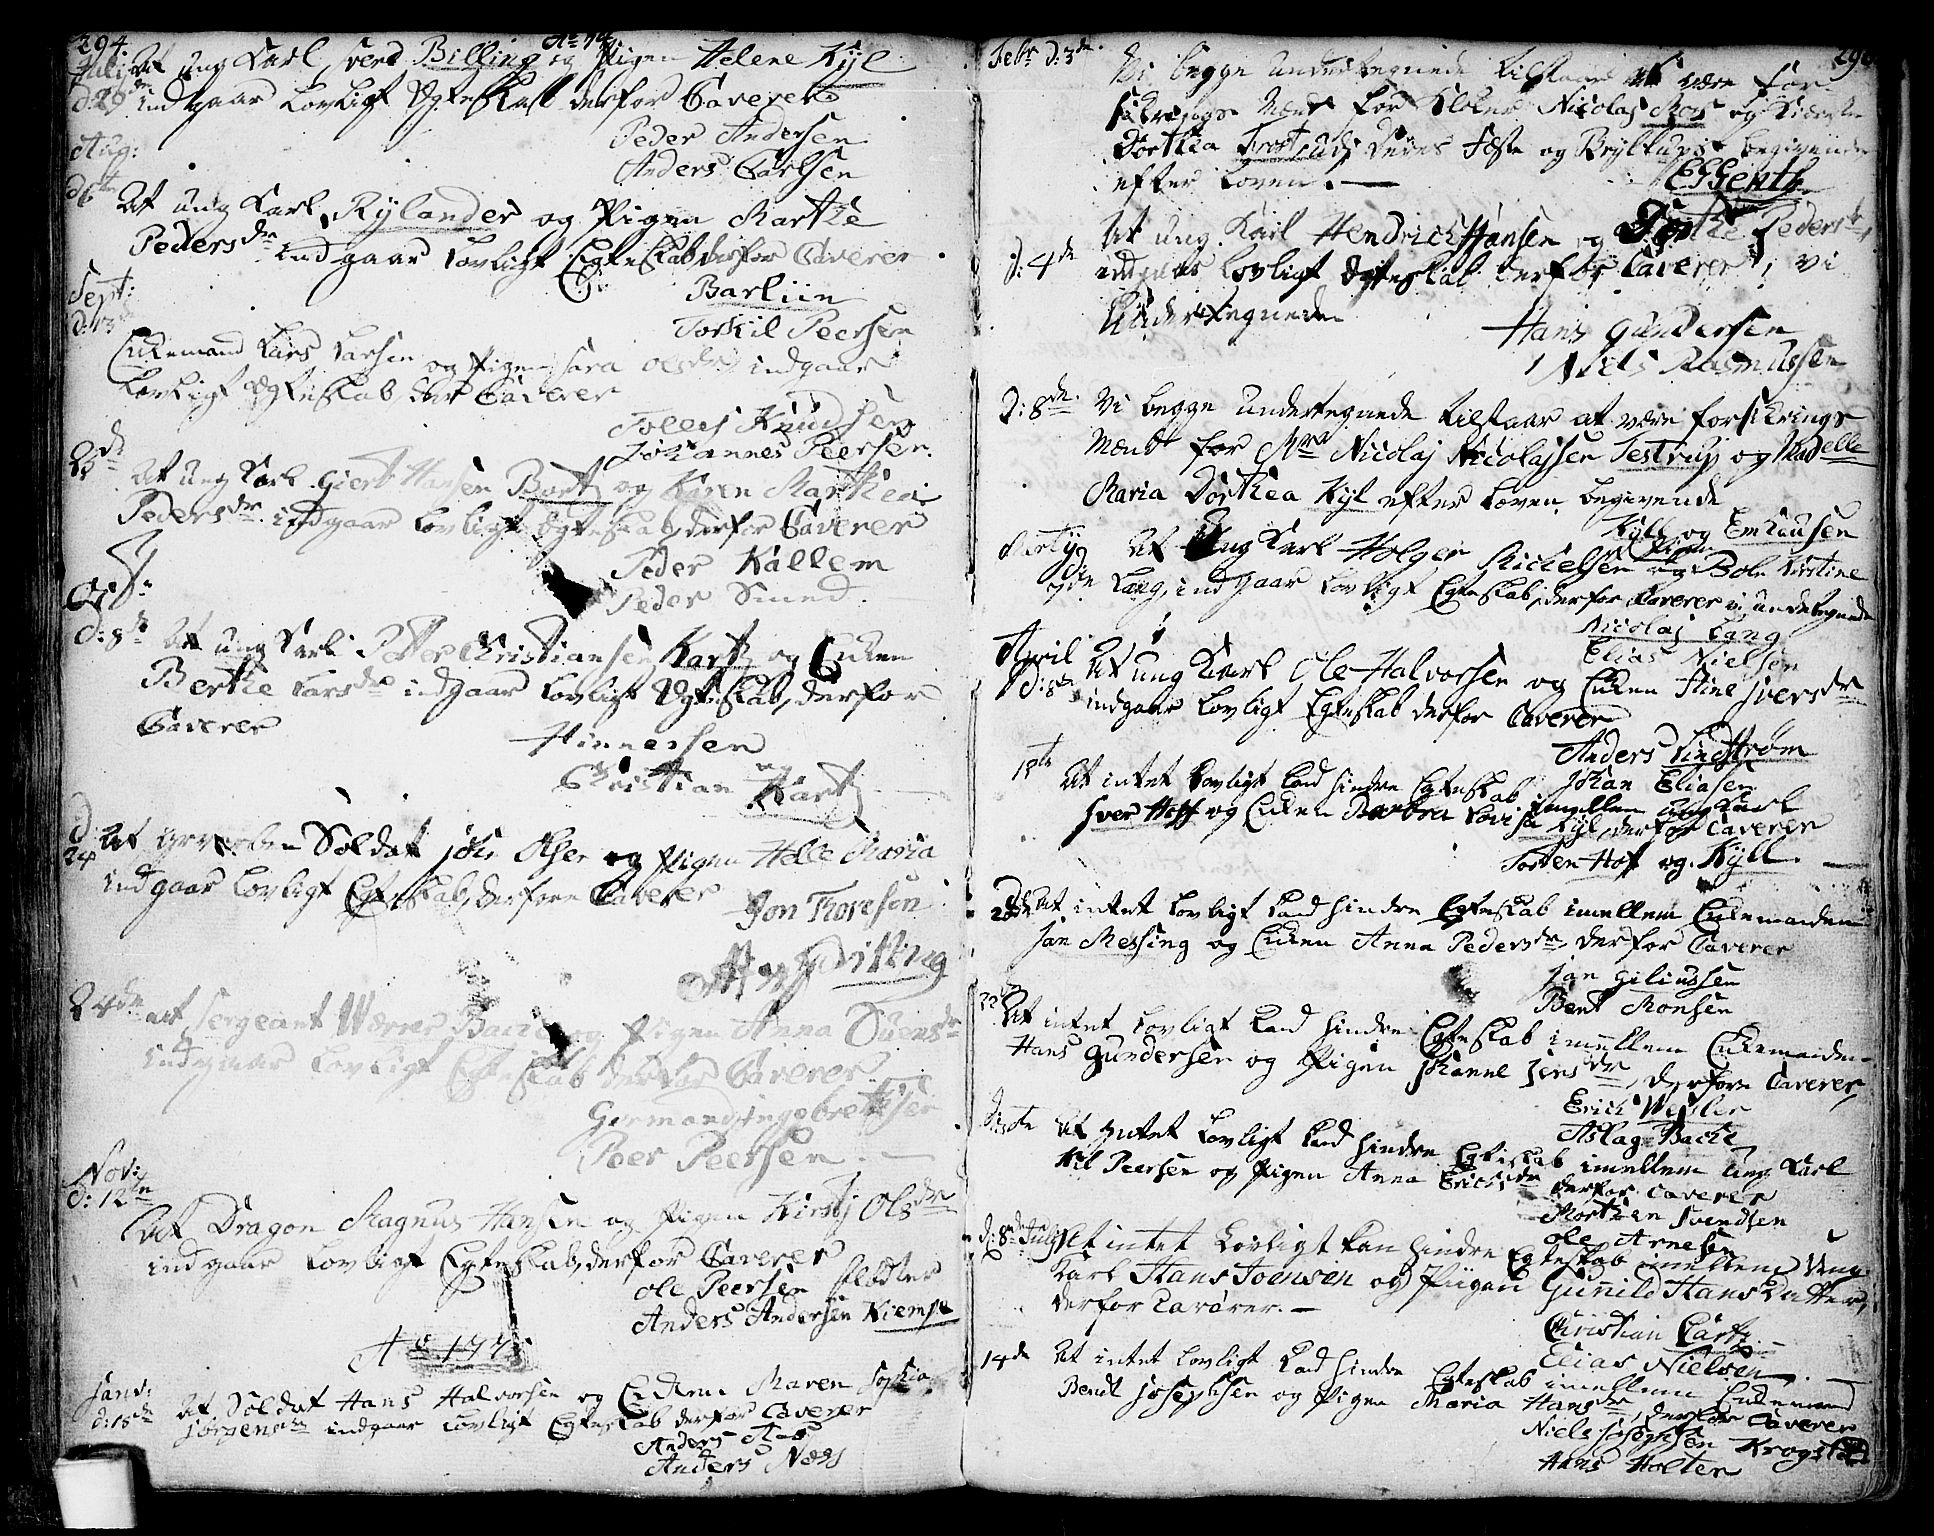 294.
Ao 74
Julij At ung Karl, Sved Billing og Pigen Helene Kijl
d: 29de indgaar Lovligt Ægteskab derfor Caverer
Peder Andersen
Anders Carlsen
Aug:
d 6te At ung Karl Rylander og Pigen Marthe
Pedersdr indgaar Lovligt Egteskab derfor Caverer
Barliin
Torkil Peersen
Sept:
d: 13de
Enkemand Lars Larsen og Pigen Sara Olsdr indgaar
Lovligt Ægteskab der Caverer
Tolleis Knudsen
Johannes Peersen.
At ung Karl Giert Hansen Bart og Karen Marthea
Pedersdr indgaar Lovligt Egteskab, derfor Caverer
Peder Kallem
Peder Smed.
d: 8de At ung Karl Petter Christiansen Kartz og Enken
Berthe Larsdr indgaar Lovligt Ægteskab, derfor
Caverer
Hinnersen
og
Christian Kartz
d:
24 At Soldat Johs Olsen og Pigen Helle Maria
indgaar Lovligt Egteskab, derfore Caverer
Jon Thoresen
Ditting
24de at Sergeant Werner Bache og Pigen Anna Svensdr
indgaar Lovligt Egteskab derfor Caverer
Germand Ingebretsen
Peer Peersen.
Nov:
d: 12te
At Dragon Magnus Hansen og Pigen Kirstj Olsdr
indgaar Lovligt Egteskab, derfor Caverer
Ole Peersen Flødter
Anders Andersen Kiemse
Ao 1775
Janv:
d: 18de At Soldat Hans Halvorsen og Enken Maren Sophia
Jørgensen indgaar Lovligt Egteskab derfor Caverer
Anders Aas
Anders Næss
Febr d: 3de. Vi begge undertegnede tilstaar at være for-
sikrings Mænd for Klokr Nicolas Mos og Kiæreste
Dorthea Frostrud, deres Fæste og Bryllups begivende
efter Loven.
EGenth
d: 4de At ung Karl Hendrich Hansen og Dorthe Pedersdr,
indgaar Lovligt Ægteskab derfor Caverer, vi
Undertegnede
Hans Gundersen
Niels Rasmussen
D: 8de. Vi begge undertegnede tilstaar at være forsikrings
Mænd for Mr Nicolaj Nicolajsen Testrup og Madelle
Maria Dorthea Kijl efter Loven begivende
Kyll og Emkausen
Marty At Ung Karl Holger Mickelsen og Pigen Bole Kirstine
Lang, indgaar Lovligt Egteskab, derfor Caverer vi undetegnede
Nicolaj Lang
Elias Nielsen
April
d: 8de At ung Karl Ole Halvorsen og Enken Stine Iversdr
indgaar Lovligt Egteskab derfor Caverer
Anders Lindstrøm
Johan Eliasen
18te At intet Lovligt Kand hindre Egteskab imellem ung Karl
Iver Hoff og Enken Barbra Lovisa Kyl, derfor Caverer
Torten Hof og Kyll.
28de At intet Lovligt Kand hindre Egteskab imellem Enkemanden
Jan Messing og Enken Anna Pedersdr derfor Caverer
Jan Giliussen
Bent Monsen
At intet Lovligt Kand hindre Egteskab imellem Enkemanden
Hans Gundersen og Pigen Johanne Jensdr, derfore Caverer,
Erich Wesler
Aslag Bache
At intet Lovligt Kand hindre Egteskab imellem Ung Karl
Nil Peersen og Pigen Anna Erichsdr derfor Caverer
Morthen Svendsen
Ole Arnesen
d: 8de Julij At intet Lovligt kan hindre Egteskab imellem Ung
Karl Hans Joensen og Piigen Gunild Hans Datter,
derfor Cavører.
Christian Cartz
Elias Nielsen.
14de At intet Lovligt Kand hindre Egteskab imellem Enkemand
Bendt Josephsen og Pigen Maria Hansdr, derfor Caverer
Niels Josephsen Krogstad
Hans Holter